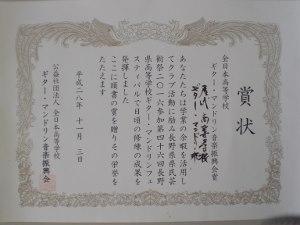 賞状
全日本高等学校
ギター・マンドリン音楽振興会賞
屋代高等学校
あなたたちは学業の余暇を活用し
てクラブ活動に励み長野県県民芸
術祭二〇一六参加第四十六回長野
県高等学校ギター・マンドリンフェ
スティバルで日頃の修練の成果を
発揮しました
ここに頭書の賞を贈りその栄誉を
たたえます
平成二八年 十一月 三日
公益社団法人 全日本高等学校
ギター・マンドリン音楽振興会